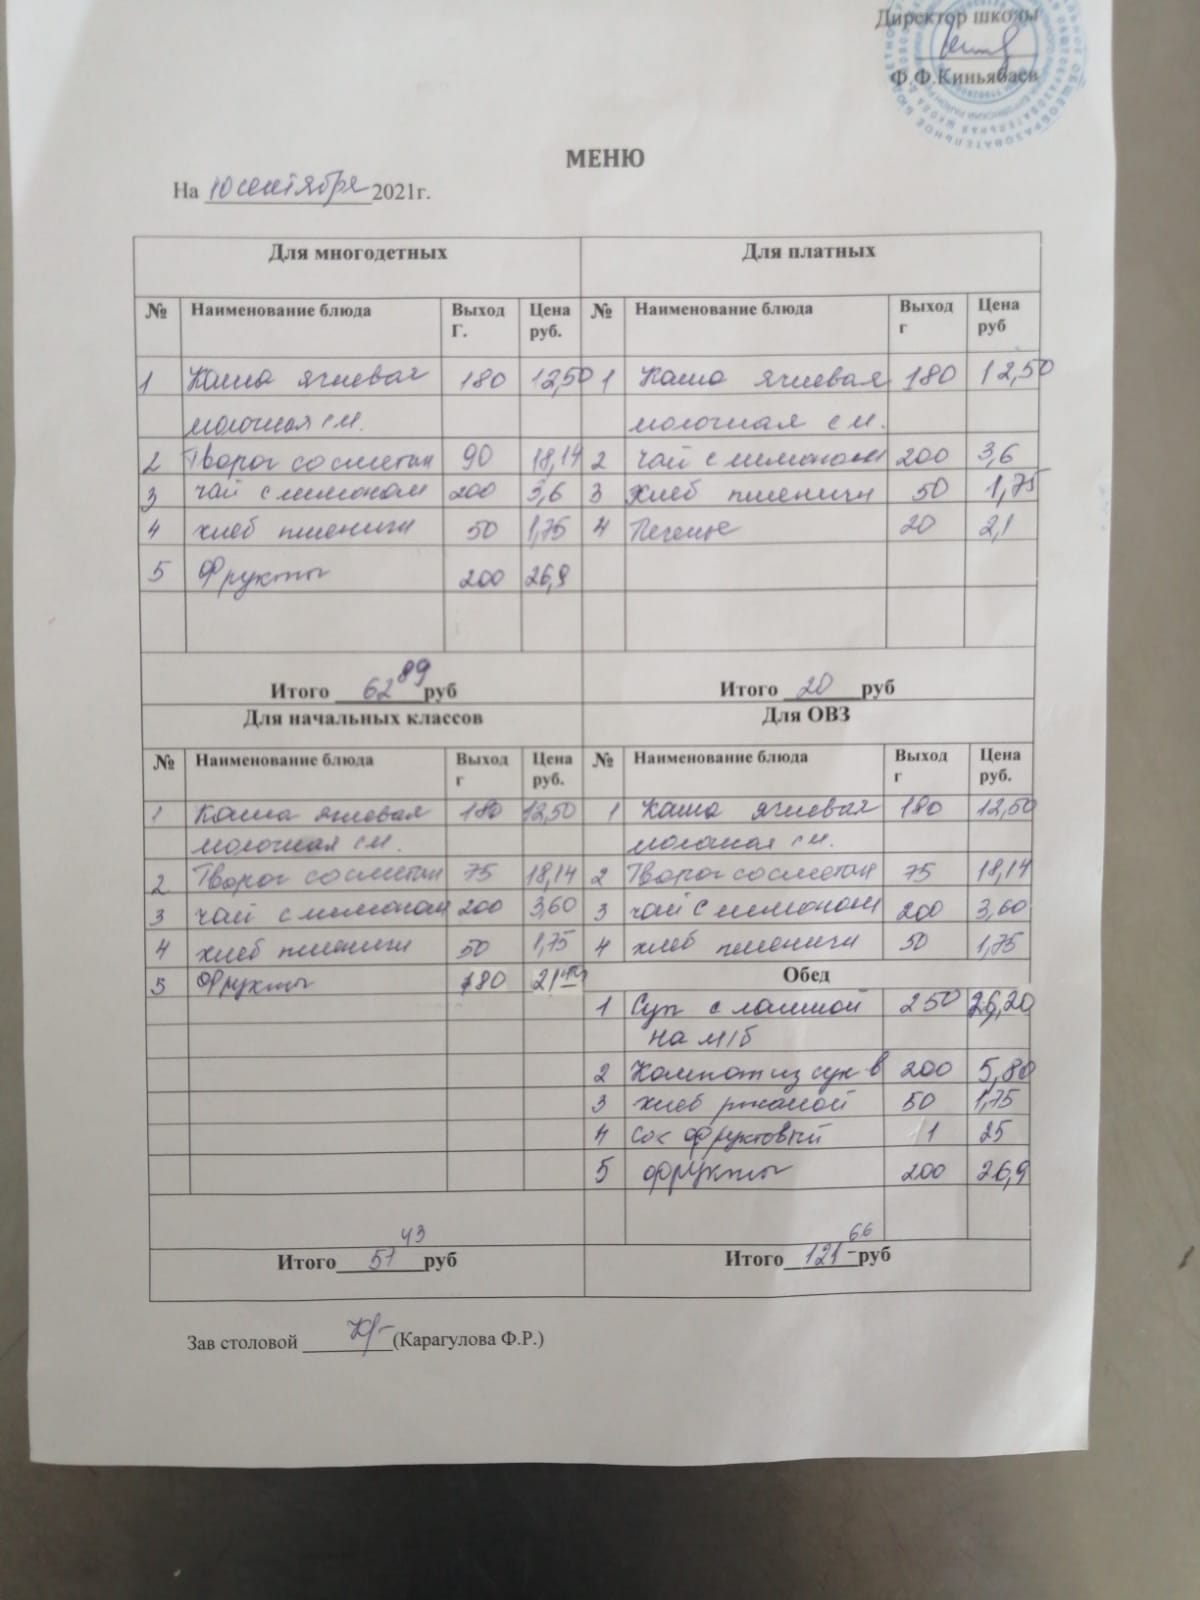 Директор школы
Ф.Ф.Киньябаев
МЕНЮ
На 10 сентября 2021г.
Для многодетных Для платных
№ Наименование блюда Выход Г. Цена руб. № Наименование блюда Выход г Цена руб
1 Каша ячневая 180 12,50 1 Каша ячневая 180 12,50
молочная с м. молочная с м.
2 Творог со сметан 90 18,14 2 чай с лимоном 200 3,6
3 чай с лимоном 200 3,6 3 Хлеб пшеничн 50 1,75
4 хлеб пшеничн 50 1,75 4 Печенье 20 2,1
5 Фрукты 200 26,9
Итого 62 89 руб Итого 20 руб
Для начальных классов Для ОВЗ
№ Наименование блюда Выход г Цена руб. № Наименование блюда Выход г Цена руб.
1 Каша ячневая 180 12,50 1 Каша ячневая 180 12,50
молочная с м. молочная с м.
2 Творог со сметан 75 18,14 2 Творог со сметан 75 18,14
3 чай с лимоном 200 3,60 3 чай с лимоном 200 3,60
4 хлеб пшеничн 50 1,75 4 хлеб пшеничн 50 1,75
5 Фрукты 180 Обед
1 Суп с лапшой 250 26,20
на м/б
2 Компот из сух-в 200 5,80
3 хлеб ржаной 50 1,75
4 Сок фруктовый 1 25
5 фрукты 200 26,9
Итого 51 43 руб Итого 121-66 руб
Зав столовой (Карагулова Ф.Р.)